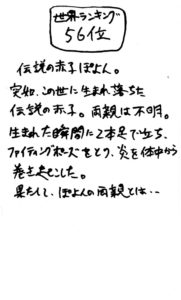 世界ランキング
56位
伝説の赤子ぽよん。
突如、この世に生まれ落ちた
伝説の赤子。両親は不明。
生まれた瞬間に2本足で立ち、
ファイティングポーズをとり、炎を体中から
巻き起こした。
果たして、ぽよんの両親とは…